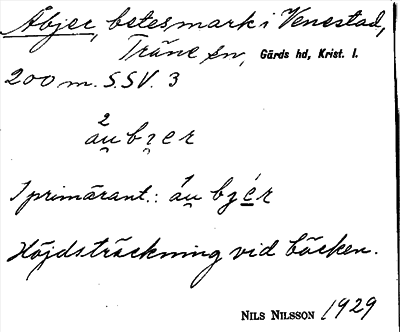 Åbjer, betesmark i Venestad,
Träne sn, Gärds hd, Krist. l.
200 m. S.SV. 3
2
àu̯bʒer
I primärant.: áu̯bʒér
Höjdsträckning vid bäcken.
NILS NILSSON 1929